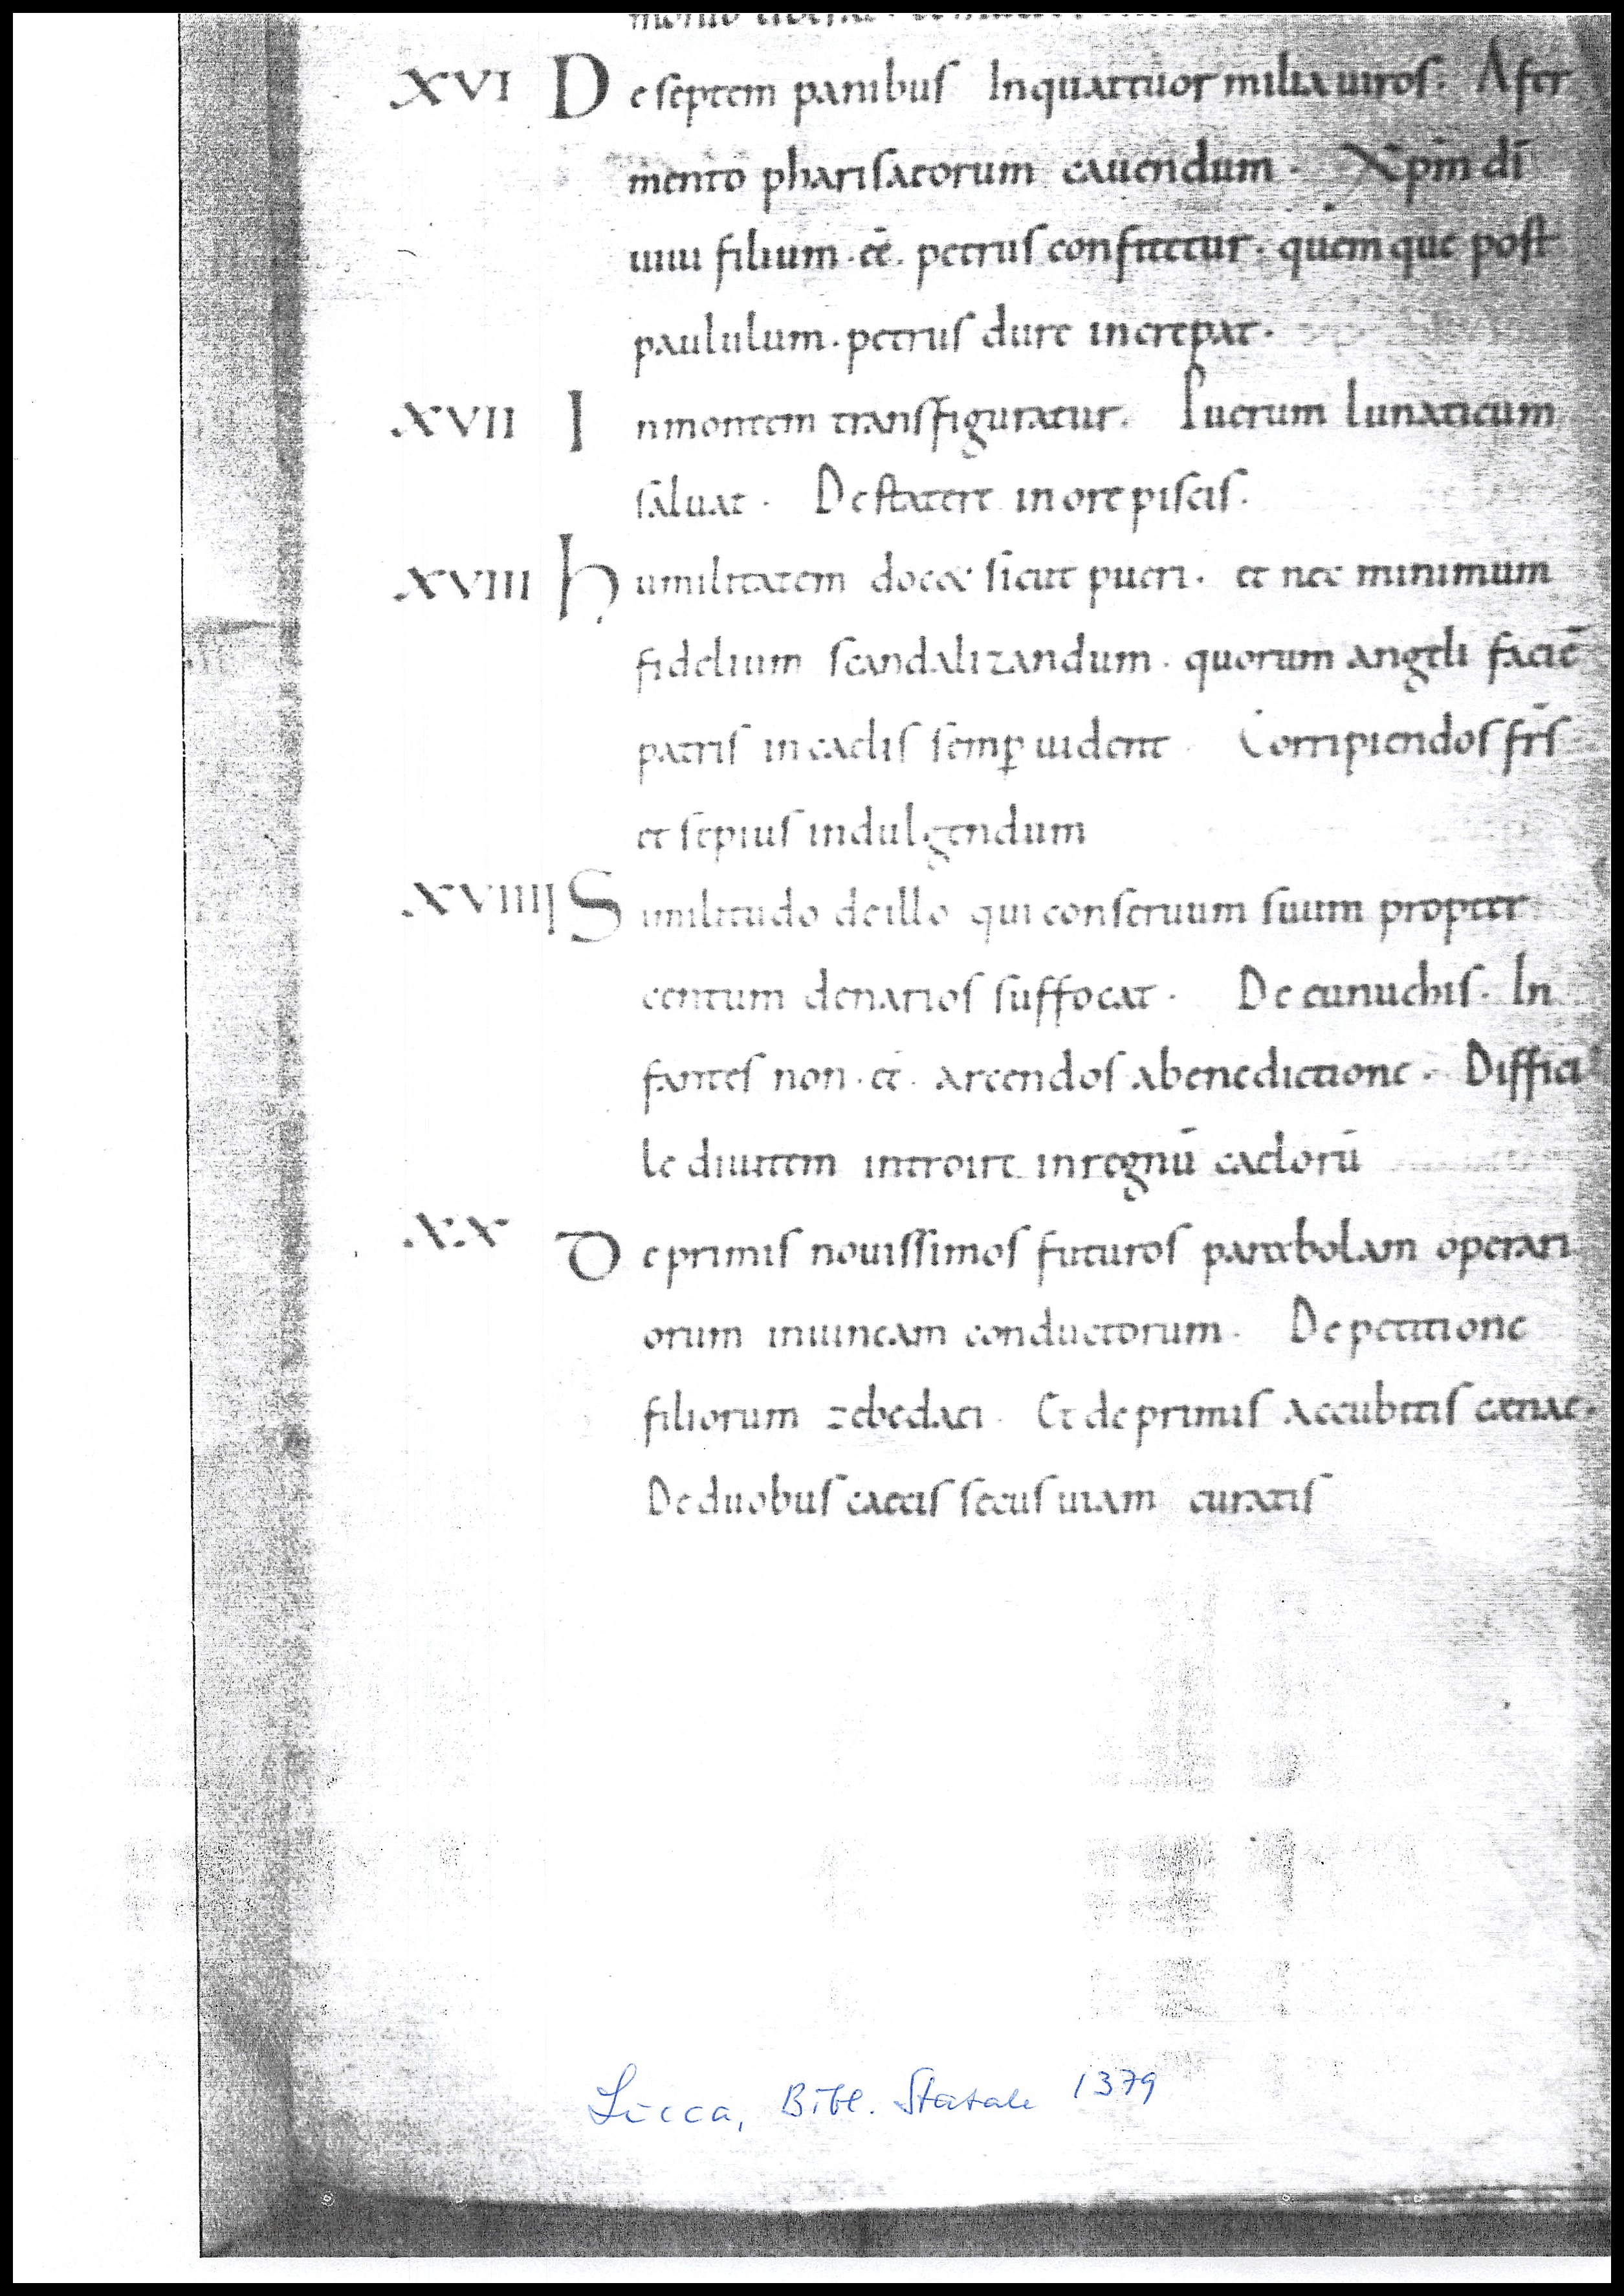 XVI De septem panibus In quattuor milia uiros. A fer
mento pharisaeorum cauendum. Xpm dī
uiui filium. eē. petrus confitetur. quemque post
paululum. petrus dure increpat.
XVII In montem transfiguratur. Puerum lunaticum
saluat. De statere in ore piscis.
XVIII Humilitatem docet sicut pueri. et nec minimum
fidelium scandalizandum. quorum angeli faciē
patris in caelis semꝑ uident Corripiendos fr̄s
et sepius indulgendum
XVIIII Similitudo de illo qui conseruum suum propter
centum denarios suffocat. De eunuchis. In
fantes non. eē. arcendos a benedictione. Diffici
le diuitem introire in regnū caelorū
XX De primis nouissimos futuros parabolam operari
orum in uineam conductorum. De petitione
filiorum zebedaei. Et de primis accubitis cenae.
De duobus caecis secus uiam curatis
Lucca, Bibl. Statale 1379